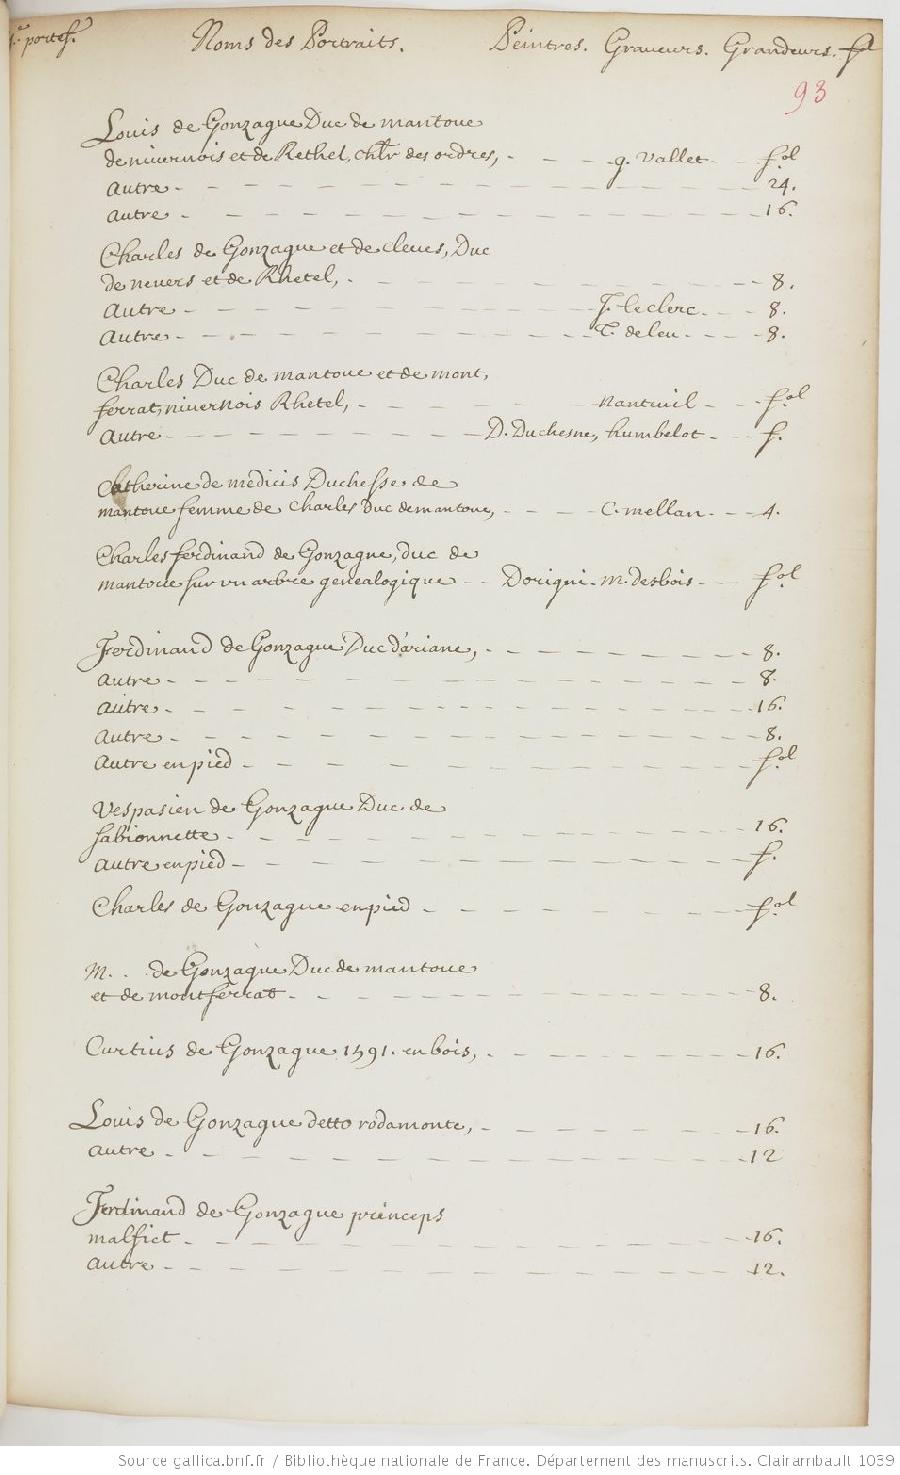 portef. Noms des Portraits. Peintres. Graveurs. Grandeurs. fl
93
Louis de Gonzague Duc de mantoue
de nivernois et de Rethel, chlr des ordres, - - - g. Vallet - - fol
autre - - - 24.
autre - - - 16.
Charles de Gonzague et de cleves, Duc
de nevers et de Rhetel, - - - 8.
autre - - - J. leclerc - - - 8.
autre - - - T. de leu - - - 8.
Charles Duc de mantoue et de mont,
ferrat, nivernois Rhetel, - - - nantuil - - fol
autre - - - D. Duchesne, humbelot - - f.
Catherine de medicis Duchesse de
mantoue femme de Charles Duc de mantoue, - - - C. mellan - - - 4.
Charles ferdinand de Gonzague, duc de
mantoue sur un arbre genealogique - - Dorigni - m. desbois - - fol
Ferdinand de Gonzague Duc d'ariane, - - - 8.
autre - - - 8.
autre - - - 16.
autre - - - 8.
autre en pied - - - fol
Vespasien de Gonzague Duc de
sabionnette - - - 16.
autre en pied - - - f.
Charles de Gonzague en pied - - - fol
M. . de Gonzague Duc de mantoue
et de montferrat - - - 8.
Curtius de Gonzague 1591. en bois, - - - 16.
Louis de Gonzague detto rodamonte, - - - 16.
autre - - - 12
Ferdinand de Gonzague princeps
malfict - - - 16.
autre - - - 12.
Source gallica.bnf.fr / Bibliothèque nationale de France. Département des manuscrits. Clairambault 1039